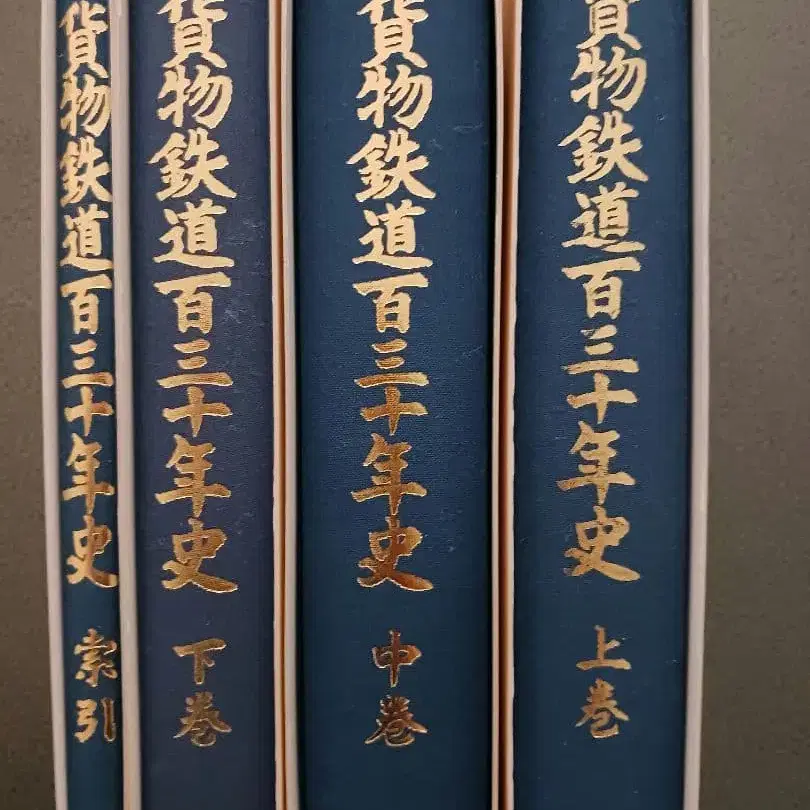 貨物鉄道百三十年史 上巻
貨物鉄道百三十年史 中巻
貨物鉄道百三十年史 下巻
貨物鉄道百三十年史 索引